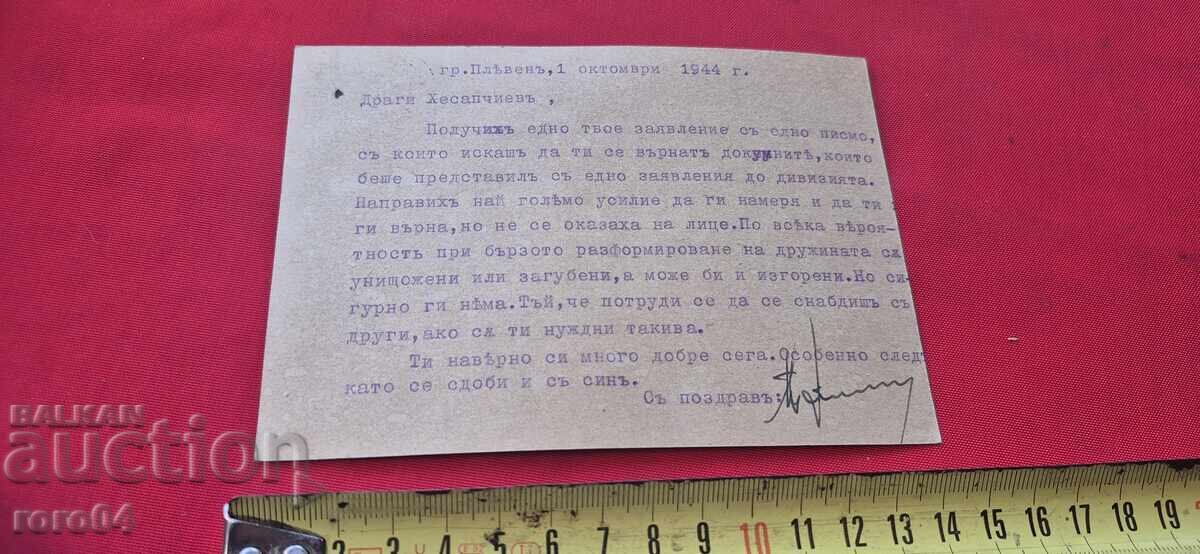 гр.Плѣвенъ,1 октомври 1944 г.
Драги Хесапчиевъ ,
Получихъ едно твое заявление съ едно писмо,
съ които искашъ да ти се върнатъ докумнитѣ,които
беше представилъ съ едно заявления до дивизията.
Направихъ най голѣмо усилие да ги намеря и да ти
ги върна,но не се оказаха на лице.По всѣка вѣроя-
тность при бързото разформироване на дружината сѫ
унищожени или загубени,а може би и изгорени.Но си-
гурно ги нѣма.Тъй,че потруди се да се снабдишъ съ
други,ако сѫ ти нуждни такива.
Ти навѣрно си много добре сега.Особенно следъ
като се сдоби и съ синъ.
Съ поздравъ:
BALKAN
auction
roro04
2 3 4 5 6 7 8 9 10 11 12 13 14 15 16 17 18 19